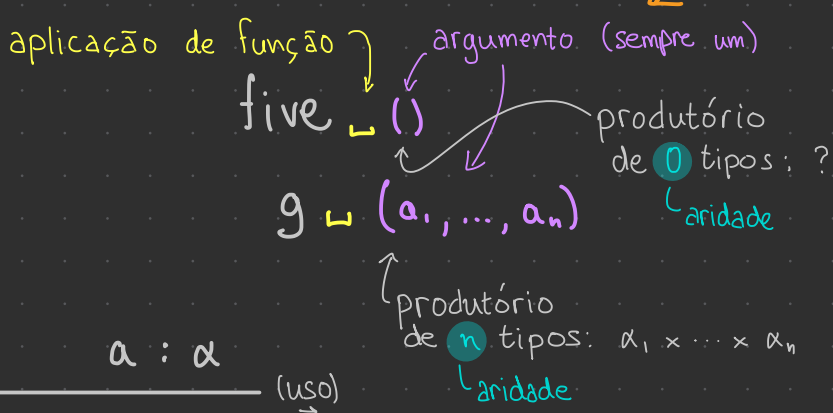 aplicação de função
argumento (sempre um)
five ␣ ()
produtório
de 0 tipos: ?
aridade
g ␣ (a₁, ..., aₙ)
produtório
de n tipos: α₁ × ⋯ × αₙ
aridade
a : α
(uso)